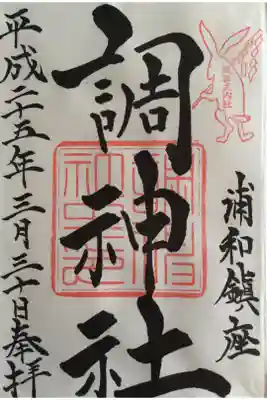 浦和鎮座
調神社
平成二十五年三月三十日奉拝